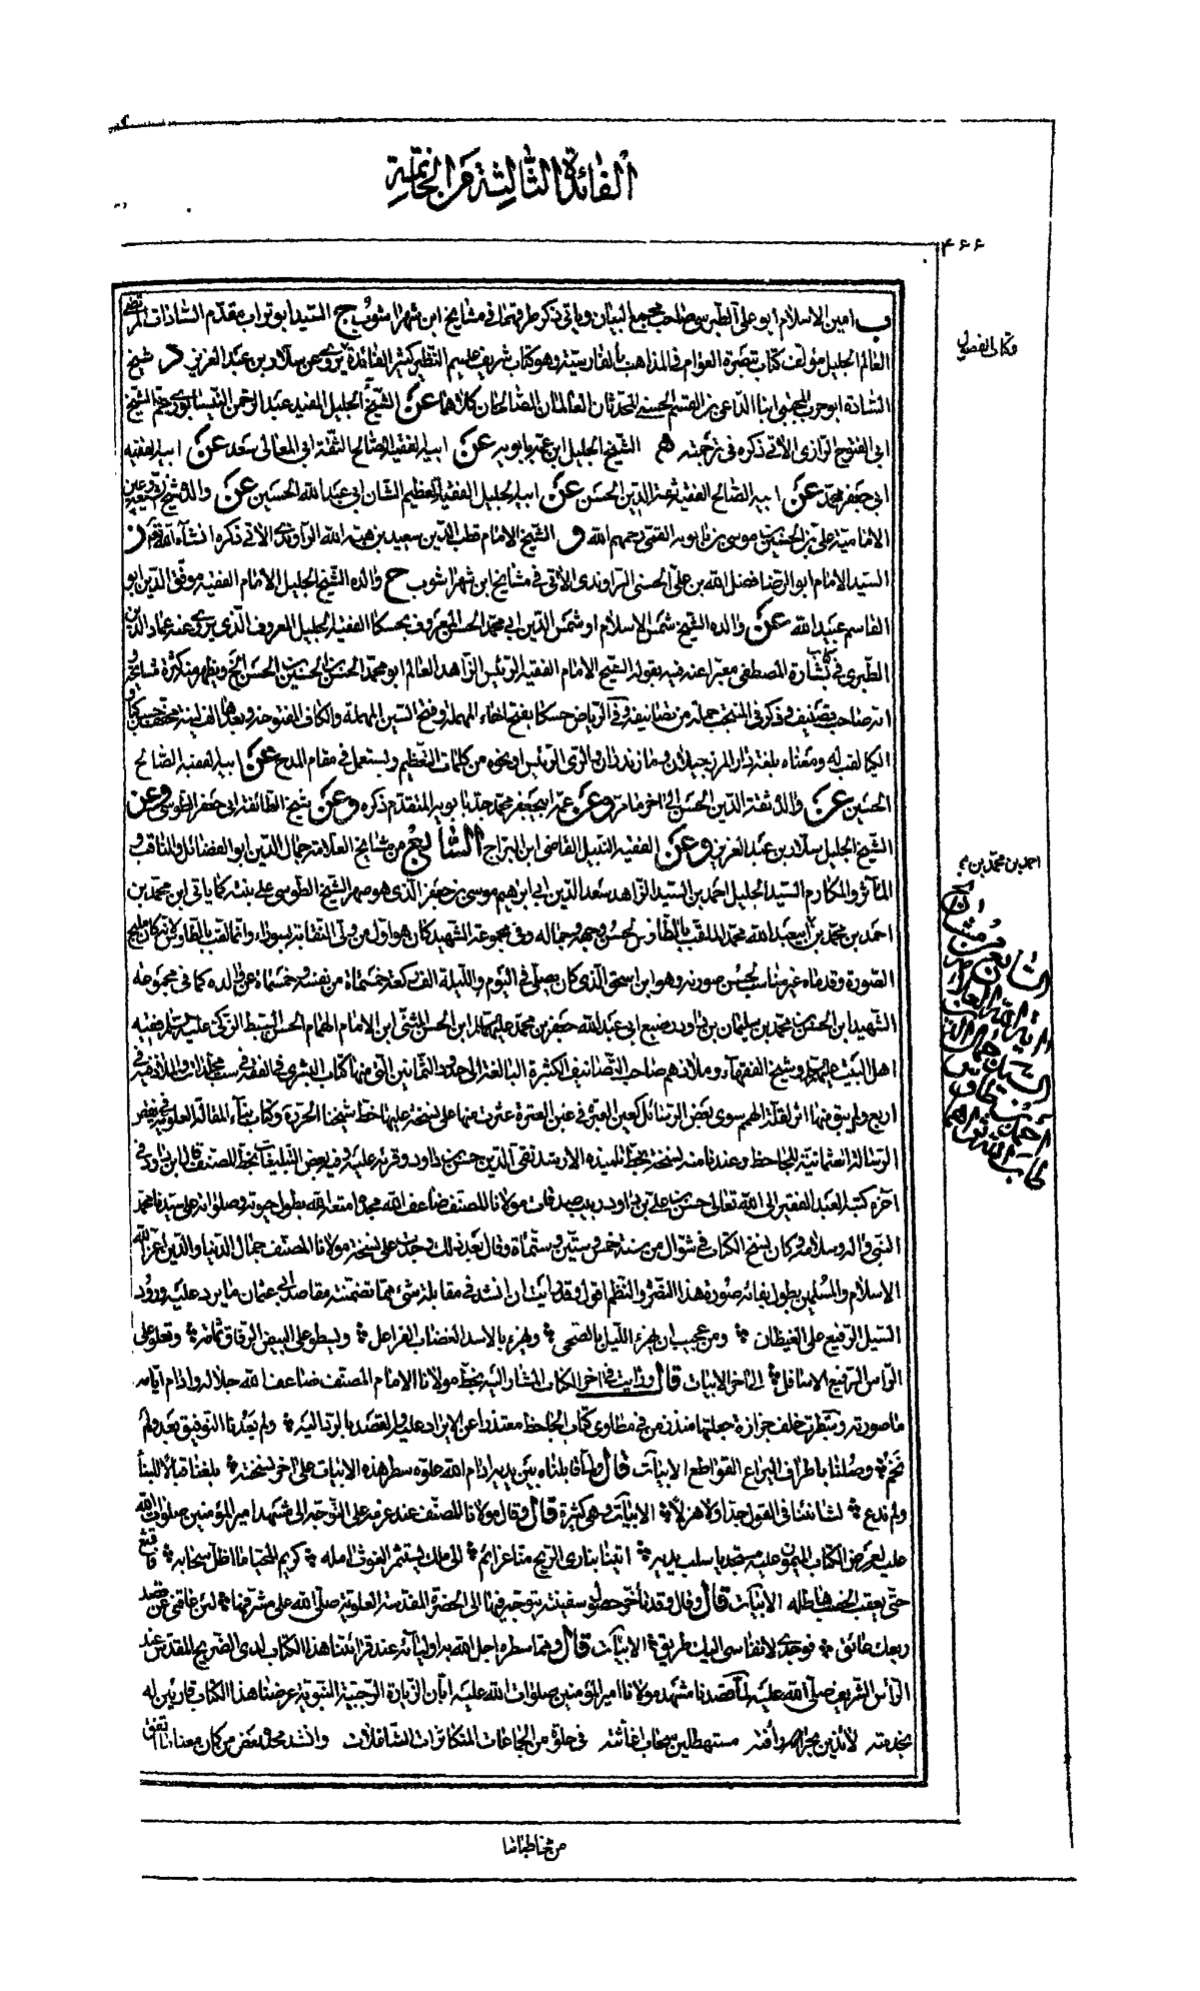 الفائدة الثالثة من الخاتمة
۴۶۶
ب امين الاسلام ابو على الطبرسى صاحب مجمع البيان وياتى ذكر طرقهما فى مشايخ ابن شهراشوب ج السيد ابو تراب مقدم السادات المرتضى
العالم الجليل مؤلف كتاب تبصرة العوام فى المذاهب بالفارسية وهو كتاب شريف عديم النظير كثير الفائدة يروى عن سلار بن عبد العزيز د شيخ
السادة ابو حرب المجتبى ابنا الداعى بن القسم الحسنى المحدثان العالمان الصالحان كلاهما عن الشيخ الجليل المفيد عبد الرحمن النيسابورى عم الشيخ
ابى الفتوح الرازى الاتى ذكره فى ترجمته ه الشيخ الجليل ابن عمه بابويه عن ابيه الفقيه الصالح الثقة ابى المعالى سعد عن ابيه الفقيه
ابى جعفر محمد عن ابيه الصالح الفقيه ثقة الدين الحسن عن ابيه الجليل الفقيه العظيم الشان ابى عبد الله الحسين عن والده شيخ
الامامية على بن الحسين بن موسى بن بابويه القمى رحمهم الله و الشيخ الامام قطب الدين سعيد بن هبة الله الراوندى الاتى ذكره انشاء الله تعالى ز
السيد الامام ابو الرضا فضل الله بن على الحسنى الراوندى الاتى فى مشايخ ابن شهراشوب ح والده الشيخ الجليل الامام الفقيه موفق الدين ابو
القاسم عبيد الله عن والده الشيخ شمس الاسلام او شمس الدين ابى محمد الحسن المعروف بحسكا الفقيه الجليل المعروف الذى يروى عنه عماد الدين
الطبرى فى كتاب بشارة المصطفى معبرا عنه فيه بقوله الشيخ الامام الفقيه الرئيس الزاهد العالم ابو محمد الحسن بن الحسين بن الحسن الخ ويظهر منه كثرة مشايخه و
انه صاحب تصنيف وذكر فى المنتجب جملة من تصانيفه وفى الرياض حسكا بفتح الحاء المهملة وفتح السين المهملة والكاف المفتوحة وبعدها الف لينة مخفف حسن كيا و
الكيا لقب له ومعناه بلغة دار المرز جيلان ومازندران والرى الرئيس او نحوه من كلمات التعظيم ويستعمل فى مقام المدح عن ابيه الفقيه الصالح
الحسين عن والده ثقة الدين الحسن الى اخر ما مر وعن عمه ابيجعفر محمد جد بابويه المتقدم ذكره وعن شيخ الطائفة ابى جعفر الطوسى وعن
الشيخ الجليل سلار بن عبد العزيز وعن الفقيه النبيل القاضى ابن البراج السابع من مشايخ العلامة جمال الدين ابو الفضائل والمناقب و
المآثر والمكارم السيد الجليل احمد بن السيد الزاهد سعد الدين ابى ابراهيم موسى بن جعفر الذى هو صهر الشيخ الطوسى على بنته كما ياتى ابن محمد بن
احمد بن محمد بن ابيعبد الله محمد الملقب بالطاوس لحسن وجهه وجماله وفى مجموعة الشهيد كان هو اول من ولى النقابة بسوراء وانما لقب بالطاوس لانه كان مليح
الصورة وقدماه غير مناسب لحسن صورته وهو ابن اسحق الذى كان يصلى فى اليوم والليلة الف ركعة خمسمأة من نفسه وخمسمأة عن والده كما فى مجموعة
الشهيد ابن الحسن بن محمد بن سليمان بن داود رضيع ابى عبد الله جعفر بن محمد عليهما السلام ابن الحسن المثنى ابن الامام الهمام الحسن السبط الزكى عليه السلام فقيه
اهل البيت عليهم السلام وشيخ الفقهاء وملاذهم صاحب التصانيف الكثيرة البالغة الى حدود الثمانين التى منها كتاب البشرى فى الفقه فى ست مجلدات والملاذ فيه فى
اربع ولم يبق منها اثر لقلة الهمم سوى بعض الرسائل كعين العبرة فى غبن العترة عثرت منها على نسخة عليها خط شيخنا الحر ره وكتاب بناء المقالة العلوية فى نقض
الرسالة العثمانية للجاحظ وعندنا منه نسخة بخط تلميذه الارشد تقى الدين حسن بن داود وقرئه عليه وفيه بعض التبليغات بخط المصنف قال ابن داود فى
آخره كتبه العبد الفقير الى الله تعالى حسن بن على بن داود ربيب صدقات مولانا المصنف ضاعف الله مجده وامتعه الله بطول حيوته وصلواته على سيدنا محمد
النبى وآله وسلامه وكان نسخ الكتاب فى شوال من سنة خمس وستين وستمأة وقال بعد ذلك وجدت على نسخة مولانا المصنف جمال الدنيا والدين اعز الله
الاسلام والمسلمين بطول بقائه صورة هذا النثر والنظم اقول وقد رايت ان انشد فى مقابلة شئ مما تضمنته مقاصد ابى عثمان ما يرد عليه ورود
السيل الرفيع على الغيطان ومن عجب ان يهزء الليل بالضحى ويهزء بالاسد الغضاب الفراعل ويسطو على البيض الرقاق ثمامة وتعلو على
الراس الرفيع الاسافل الى اخر الابيات قال ورايت فى اخر الكتاب المشار اليه بخط مولانا الامام المصنف ضاعف الله جلاله وادام ايامه
ما صورته وسطرت خلف جزازة جعلتها منذ زمن فى مطاوى كتاب الجاحظ معتذرا عن الايراد عليه والقصد بالرد اليه ولم يعدنا التوفيق بعد ولم
نخم وصلنا باطراف اليراع القواطع الابيات قال ولما قابلناه بين يديه ادام الله علوه سطر هذه الابيات على اخر نسخته بلغنا قبالا للبنا
ولم ندع لشانئنا فى القول جدا ولا هزلا الابيات وهى كثيرة قال وقال مولانا المصنف عند عزمه على التوجه الى مشهد امير المؤمنين صلوات الله
عليه لعرض الكتاب الميمون عليه مستجديا سلب يديه اتينا تبارى الريح منا عزائم الى ملك يستثمر الغوث امله كريم المحيا ما اظل سحابه فاقشع
حتى يعقب الخصب هاطله الابيات قال وقال وقد تأخر حصول سفينة يتوجه فيها الى الحضرة المقدسة العلوية صلى الله على مشرفها لئن عاقنى عن قصد
ربعك عائق فوجدى لانفاسى اليك طريق الابيات قال ومما سطره اجل الله به اولياءه عند قرائتنا هذا الكتاب لدى الضريح المقدس عند
الرأس الشريف صلى الله عليه لما قصدنا مشهد مولانا امير المؤمنين صلوات الله عليه ابان الزيارة الرجبية النبوية عرضنا هذا الكتاب قارئين له
بخدمته لائذين بحرم رأفته مستهطلين سحاب اغاثته فى خلوة من الجماعات المتكاثرات الشاغلات وانشد مجده بعض من كان معنا ما اتفق
احمد بن محمد بن
السابع من مشايخ
اية الله العلامة
السيد جمال الدين
احمد بن طاوس
من مخاطباتنا